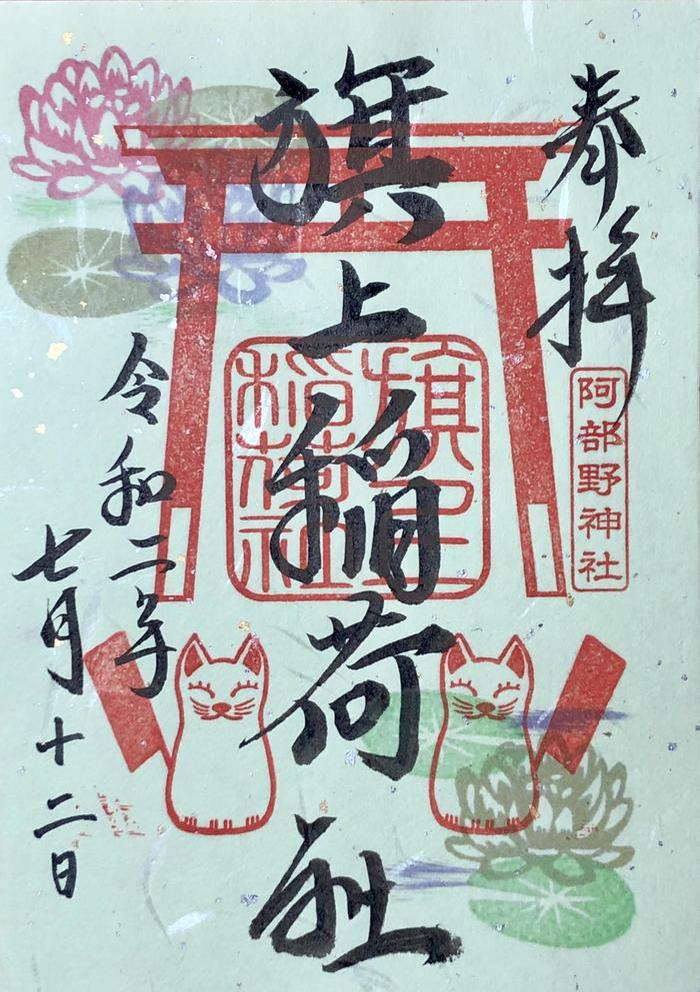 奉拝
阿部野神社
旗上稲荷社
旗上
稲荷社
令和二年
七月十二日